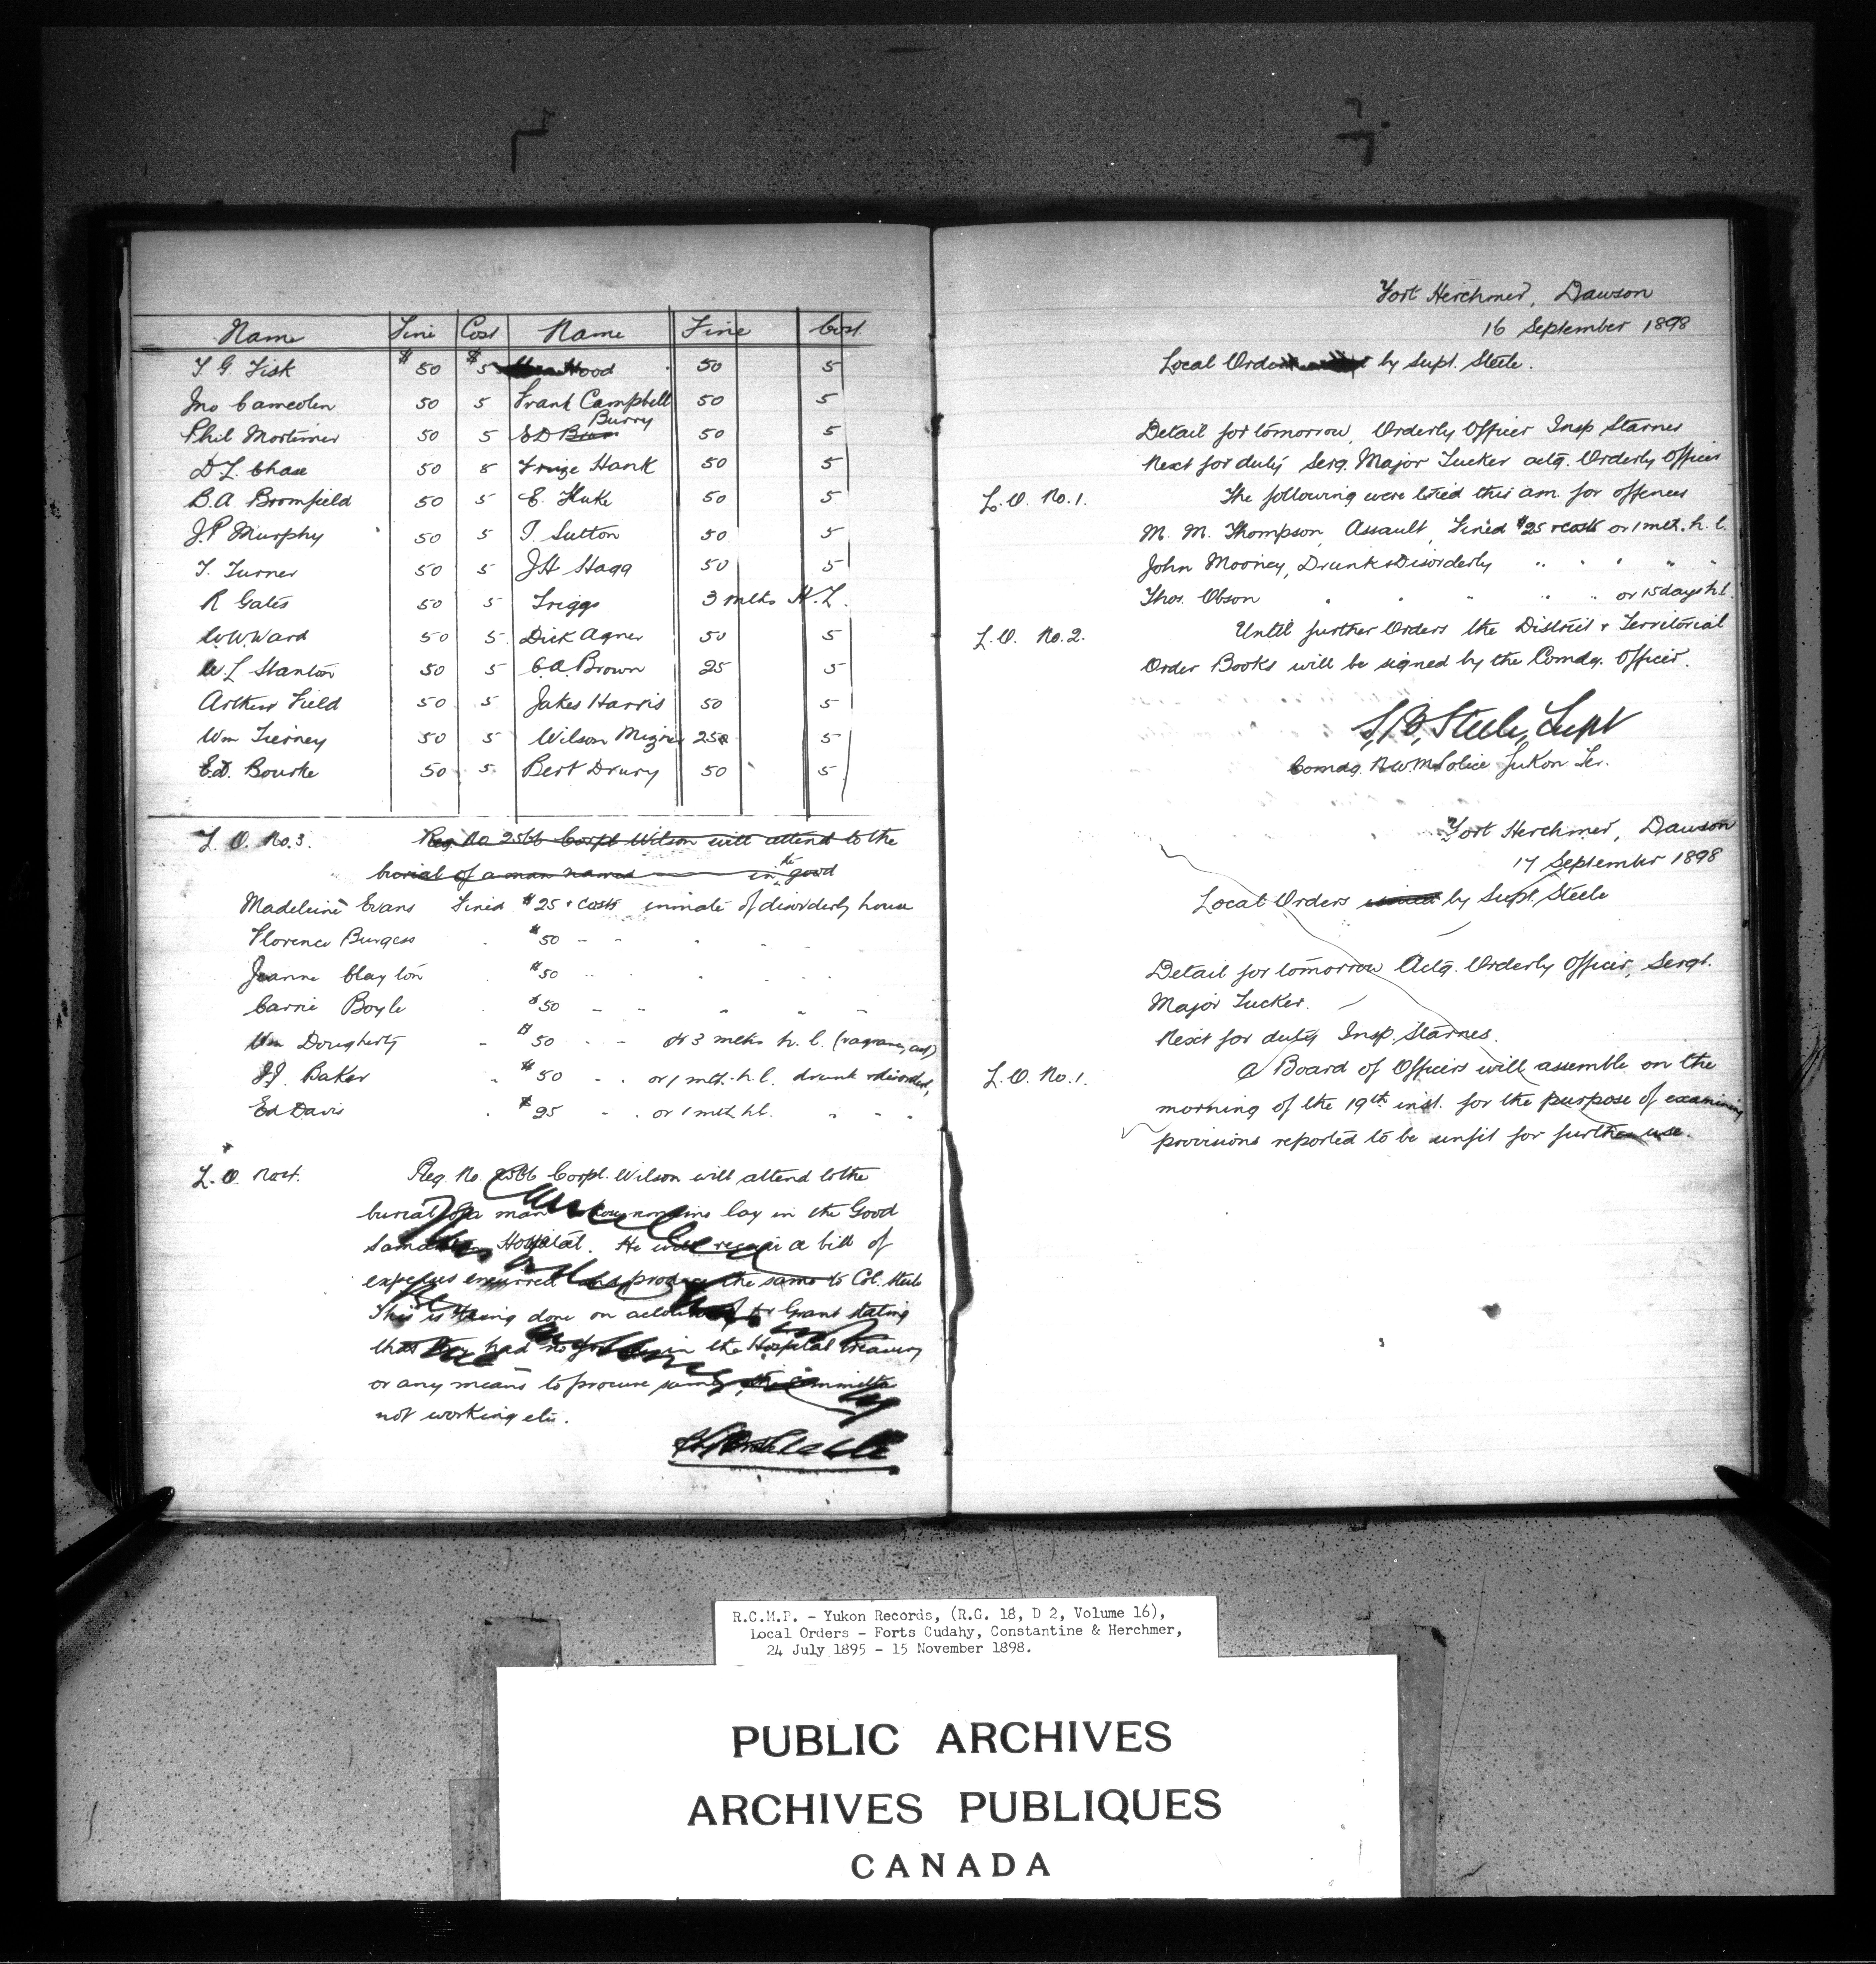 Name Fine Cost Name Fine Cost
T. G. Fisk $50 $5 Hood 50 5
Jno Cameolin 50 5 Frank Campbell 50 5
Phil Mortimer 50 5 E D Burry 50 5
D L Chase 50 5 Hank 50 5
B. A. Bromfield 50 5 E. Fluke 50 5
J. P Murphy 50 5 T. Sutton 50 5
T. Turner 50 5 J H Hagg 50 5
R Gates 50 5 Triggs 3 mths H. L.
W. W. Ward 50 5 Dick Agner 50 5
W. L Stanton 50 5 C. A. Brown 25 5
Arthur Field 50 5 Jakes Harris 50 5
Wm Tierney 50 5 Wilson Mizner 250 5
E. D. Bourke 50 5 Bert Drury 50 5
L. O. No. 3. Reg. No 2566 Corpl Wilson will attend to the
burial of a man named in the good
Madeleine Evans Fined $25 & costs inmate of disorderly house
Florence Burgess . $50 - - - - -
Jeanne Clayton . $50 - - - - -
Carrie Boyle . $50 - - " " -
Wm Dougherty - $50 - - or 3 mths h. l. (vagrancy act)
J. J. Baker " $50 - - or 1 mth. h. l. drunk & disorderly
Ed Davis . $25 - - or 1 mth h l. " " "
L. O. No 4. Reg. No. 2566 Corpl. Wilson will attend to the
burial of a man whose remains lay in the Good
Hospital. He will a bill of
expenses incurred and produce the same to Col. Steele
This is being done on account of Dr Grant stating
that they had no in the Hospital treasury
or any means to procure same, the committee
not working etc.
Fort Herchmer, Dawson
16 September 1898
Local Orders by Supt. Steele.
Detail for tomorrow, Orderly Officer Insp Starnes
Next for duty Serg. Major Tucker actg. Orderly Officer
L. O. No. 1. The following were tried this am. for offences
M. M. Thompson, Assault, Fined $25 & costs or 1 mth. h. l.
John Mooney, Drunk & Disorderly " " " " "
Thos. Obson " " " " " or 15 days h l.
L. O. No. 2. Until further Orders the District & Territorial
Order Books will be signed by the Comdg. Officer.
S. B. Steele, Supt
Comdg. N. W. M Police Yukon Ter.
Fort Herchmer, Dawson
17 September 1898
Local Orders issued by Supt. Steele
Detail for tomorrow Actg. Orderly Officer, Sergt.
Major Tucker.
Next for duty Insp. Starnes.
L. O. No. 1. A Board of Officers will assemble on the
morning of the 19th inst. for the purpose of examining
provisions reported to be unfit for further use.
R.C.M.P. - Yukon Records, (R.G. 18, D 2, Volume 16),
Local Orders - Forts Cudahy, Constantine & Herchmer,
24 July 1895 - 15 November 1898.
PUBLIC ARCHIVES
ARCHIVES PUBLIQUES
CANADA